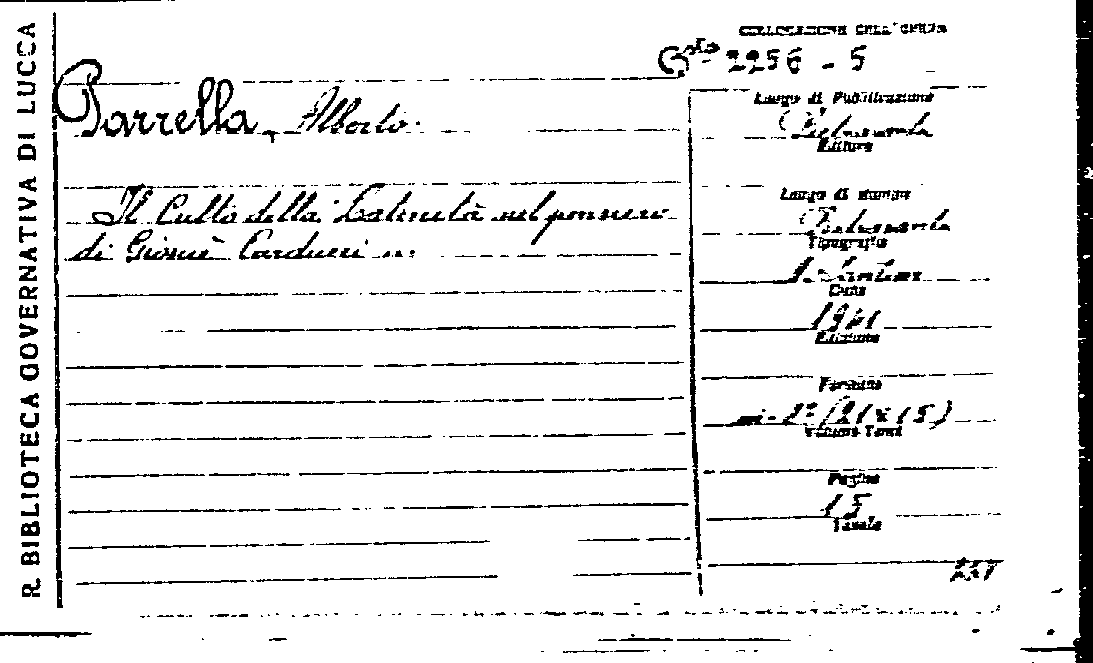 R. BIBLIOTECA GOVERNATIVA DI LUCCA
COLLOCAZIONE DELL'OPERA
Bta 2256 - 5
Parrella, Alberto.
Il Culto della Latinità nel pensiero
di Giosuè Carducci
Luogo di Pubblicazione
Pietrasanta
Editore
Luogo di stampa
Pietrasanta
Tipografia
Santini
Data
1941
Edizione
Formato
in-8° (21x15)
Volume Tomi
Pagine
15
Tavole